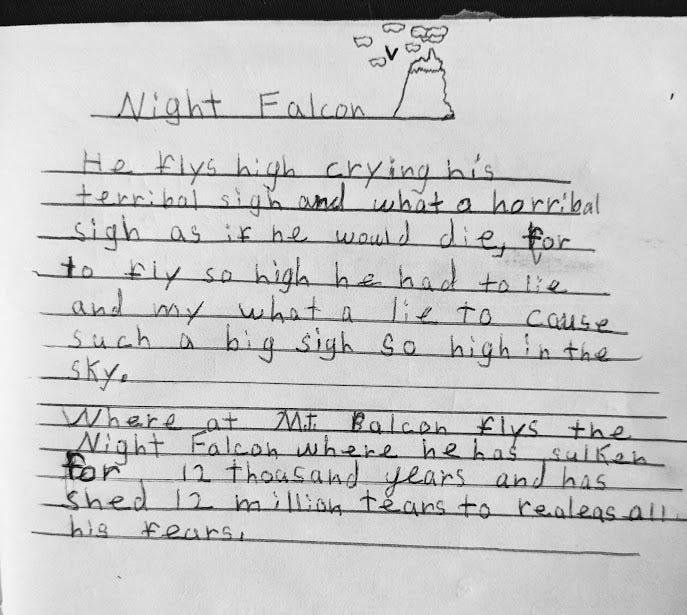 Night Falcon
He flys high crying his
terribal sigh and what a horribal
sigh as if he would die, for
to fly so high he had to lie
and my what a lie to cause
such a big sigh so high in the
sky.
Where at Mt. Balcon flys the
Night Falcon where he has sulken
for 12 thousand years and has
shed 12 million tears to realeas all
his fears.